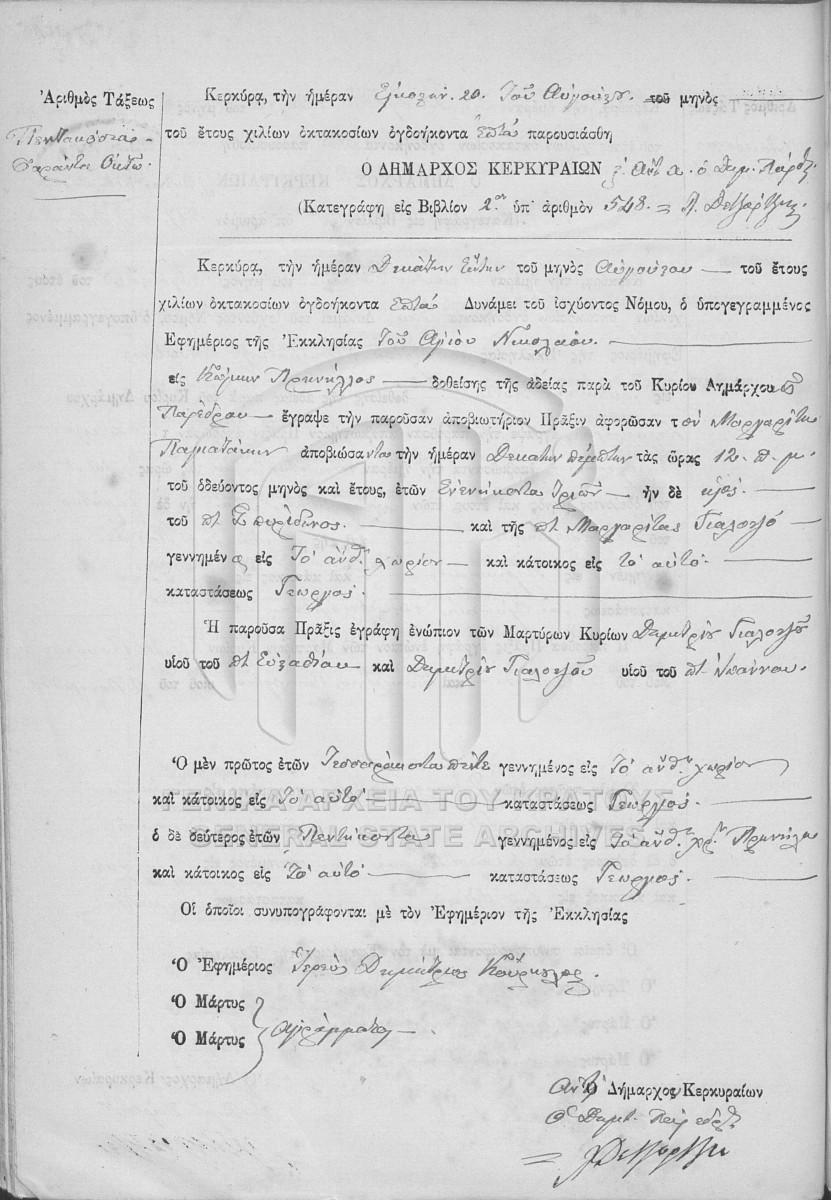 Ἀριθμὸς Τάξεως
Πεντακόσια
Σαράντα Οκτώ
Κερκύρᾳ, τὴν ἡμέραν Εἴκοσιν. 20. Τοῦ Αὐγούστου. τοῦ μηνὸς
τοῦ ἔτους χιλίων ὀκτακοσίων ὀγδοήκοντα Ἑπτὰ παρουσιάσθη
Ὁ ΔΗΜΑΡΧΟΣ ΚΕΡΚΥΡΑΙΩΝ
(Κατεγράφη εἰς Βιβλίον 2ον ὑπ' ἀριθμὸν 548.
Κερκύρᾳ, τὴν ἡμέραν Δεκάτην τοῦ μηνὸς Αὐγούστου τοῦ ἔτους
χιλίων ὀκτακοσίων ὀγδοήκοντα Ἑπτὰ Δυνάμει τοῦ ἰσχύοντος Νόμου, ὁ ὑπογεγραμμένος
Ἐφημέριος τῆς Ἐκκλησίας Τοῦ Ἁγίου Νικολάου.
εἰς Κώμην δοθείσης τῆς ἀδείας παρὰ τοῦ Κυρίου Δημάρχου
Παρέδρου ἔγραψε τὴν παροῦσαν ἀποβιωτήριον Πρᾶξιν ἀφορῶσαν τὸν Μαργαρίτην
ἀποβιώσαντα τὴν ἡμέραν Δεκάτην πέμπτην τὰς ὥρας 12. π. μ.
τοῦ ὁδεύοντος μηνὸς καὶ ἔτους, ἐτῶν Ἐνενήκοντα τριῶν ἦν δὲ υἱός.
τοῦ πτ Σπυρίδωνος. καὶ τῆς πτ Μαργαρίτας Γιαλοψοῦ
γεννημένα εἰς Τὸ ἀνθ. χωρίον καὶ κάτοικος εἰς τὸ αὐτό.
καταστάσεως Γεωργός.
Ἡ παροῦσα Πρᾶξις ἐγράφη ἐνώπιον τῶν Μαρτύρων Κυρίων Δημητρίου Γιαλοψοῦ
υἱοῦ τοῦ πτ Εὐσταθίου καὶ Δημητρίου Γιαλοψοῦ υἱοῦ τοῦ πτ Ἰωάννου.
Ὁ μὲν πρῶτος ἐτῶν Τεσσαράκοντα πέντε γεννημένος εἰς Τὸ ἀνθ. χωρίον
καὶ κάτοικος εἰς Τὸ αὐτό καταστάσεως Γεωργός.
ὁ δὲ δεύτερος ἐτῶν Πεντήκοντα γεννημένος εἰς Τὸ ἀνθ. χρ.
καὶ κάτοικος εἰς Τὸ αὐτό καταστάσεως Γεωργός.
Οἱ ὁποῖοι συνυπογράφονται μὲ τὸν Ἐφημέριον τῆς Ἐκκλησίας
Ὁ Ἐφημέριος Ἱερεὺς Δημήτριος
Ὁ Μάρτυς
Ὁ Μάρτυς
Ἀγράμματοι
Ἀντ' Ὁ Δήμαρχος Κερκυραίων
Ὁ Δημτ. Πάρεδρος
ΓΕΝΙΚΑ ΑΡΧΕΙΑ ΤΟΥ ΚΡΑΤΟΥΣ
GENERAL STATE ARCHIVES